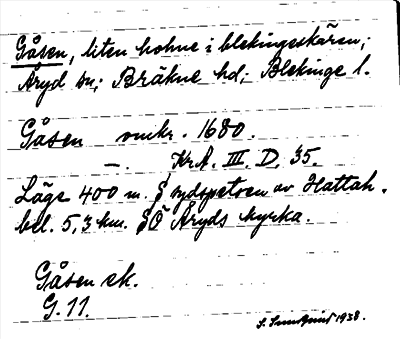 Gåsen, liten holme i blekingeskären;
Åryd sn; Bräkne hd; Blekinge l.
Gåsen omkr. 1680.
—. KrA. III. D. 35.
Läge 400 m. S sydspetsen av Hattah.
bel. 5,3 km. SÖ Åryds kyrka.
Gåsen ek.
G. 11.
S. Sundquist 1938.